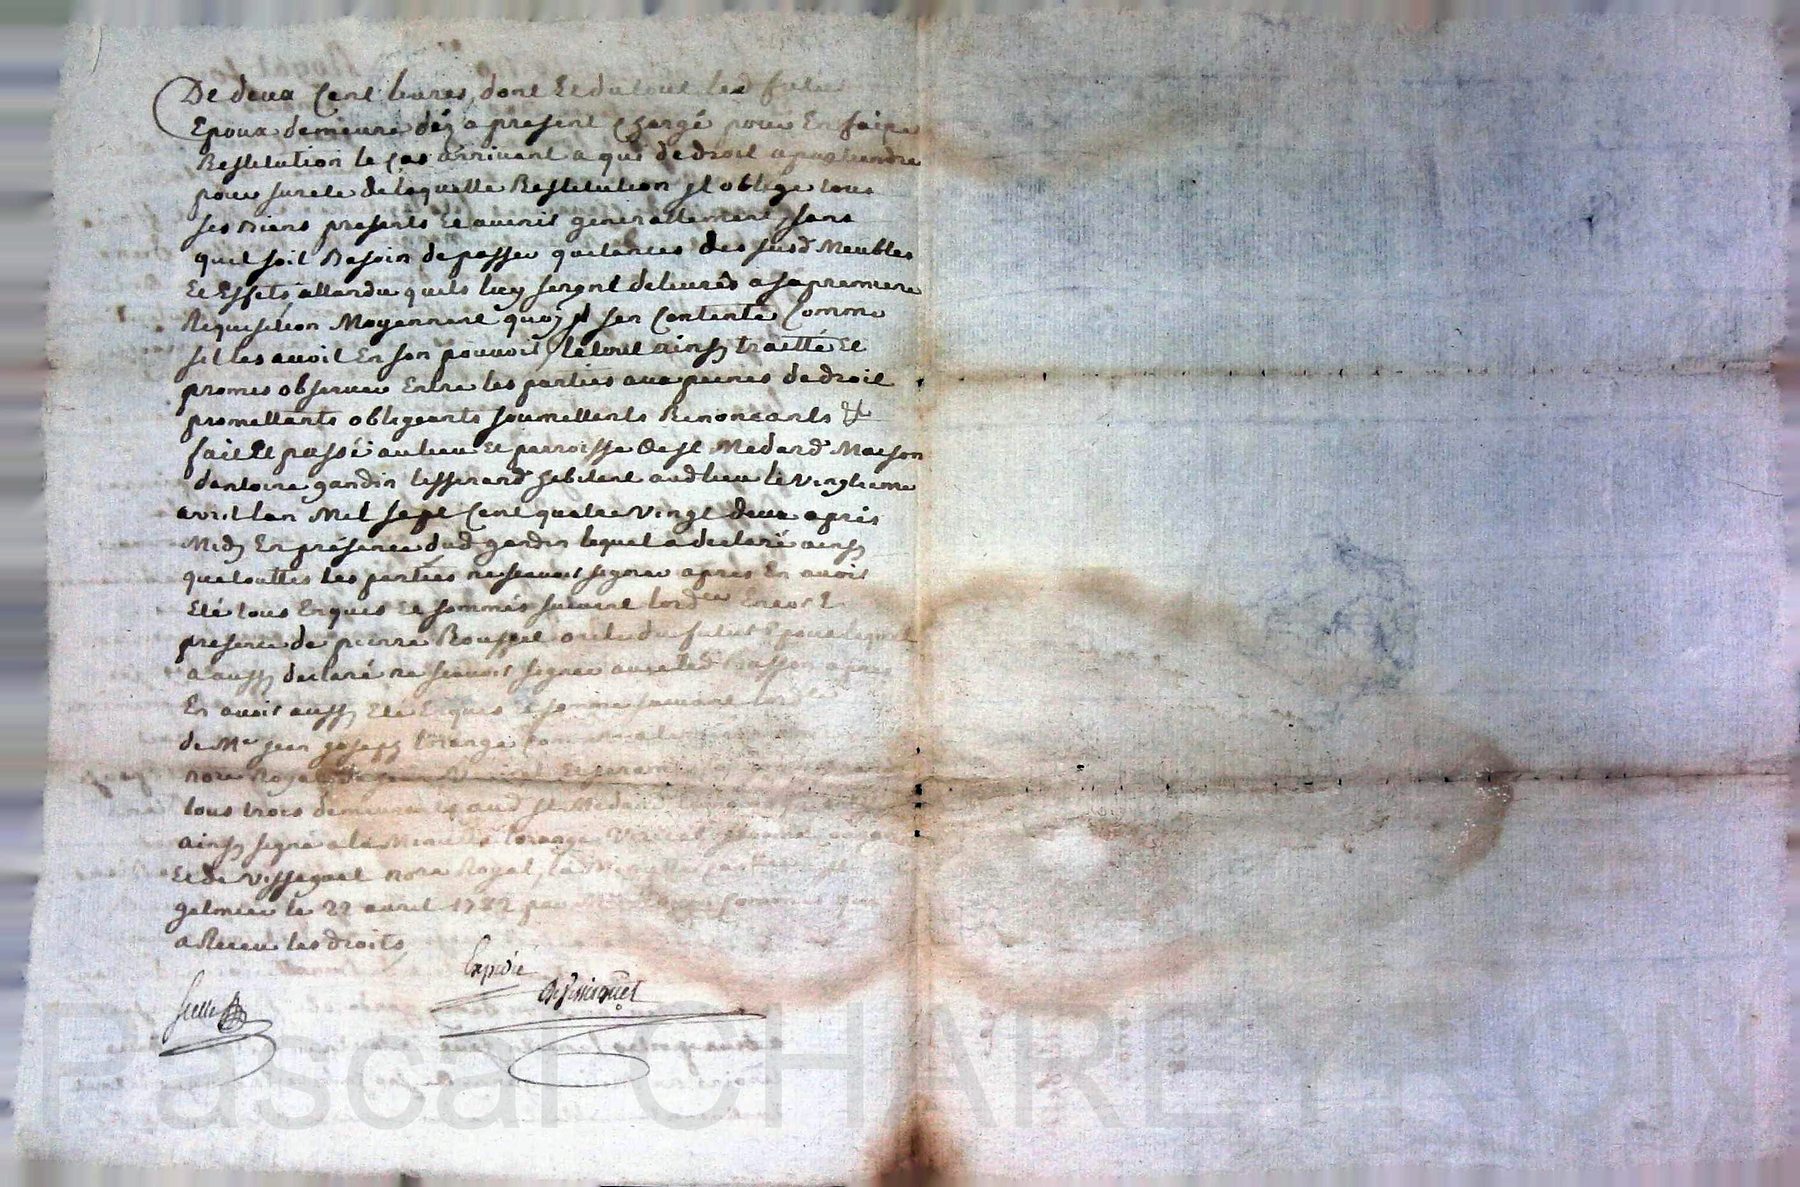 De deux Cent livres, dont Et du tout led futur
Epoux demeure déz a present chargé pour En faire
Restitution le cas arrivant a qui de droit apartiendra
pour surete de laquelle Restitution il oblige tous
ses Biens presents Et avenir generallement, sans
quil soit Besoin de passer quitances des susd Meubles
Et Effets attandu quils luy seront delivrés a sa premiere
Requisition Moyennent quoy il sen Contente Comme
sil les avoit En son pouvoir, le tout ainsy traitté Et
promis observer Entre les parties aux peines de droit
promettants obligeants soumettents Renoncants &
fait Et passé au lieu Et parroisse de st Medard Maison
dantoine gardin tisserand habitant aud lieu le vingtieme
avril lan Mil sept Cent quatre vingt deux apres
Midy En présence dud gardin lequel a declaré ainsy
que touttes les parties ne scavoir signer apres En avoir
Eté tous Enquis Et sommés suivant lord.ce Encor E
presence de pierre Rousset oncle du futur Epoux lequel
a aussy declaré ne scavoir signer avec led Basson apres
En avoir aussy Eté Enquis Et sommé suivant lord.ce
de Me jean joseph lorange
nore Royal
tous trois demeurants aud st Medard
ainsy signé a la Minutte lorange
Et de vissaguet nore Royal, la Minutte
galmier le 22 avril 1782 par Commis qui
a Receu les droits
Expedie
Devissaguet
Scellé
Pascal CHAREYRON